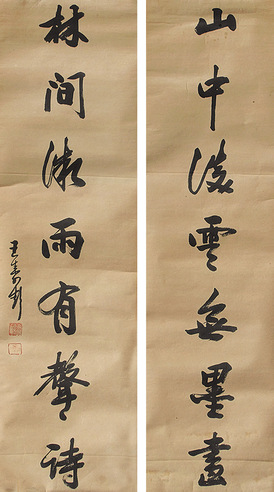 山中淡雲無墨畫
林間微雨有聲詩
王壽彭